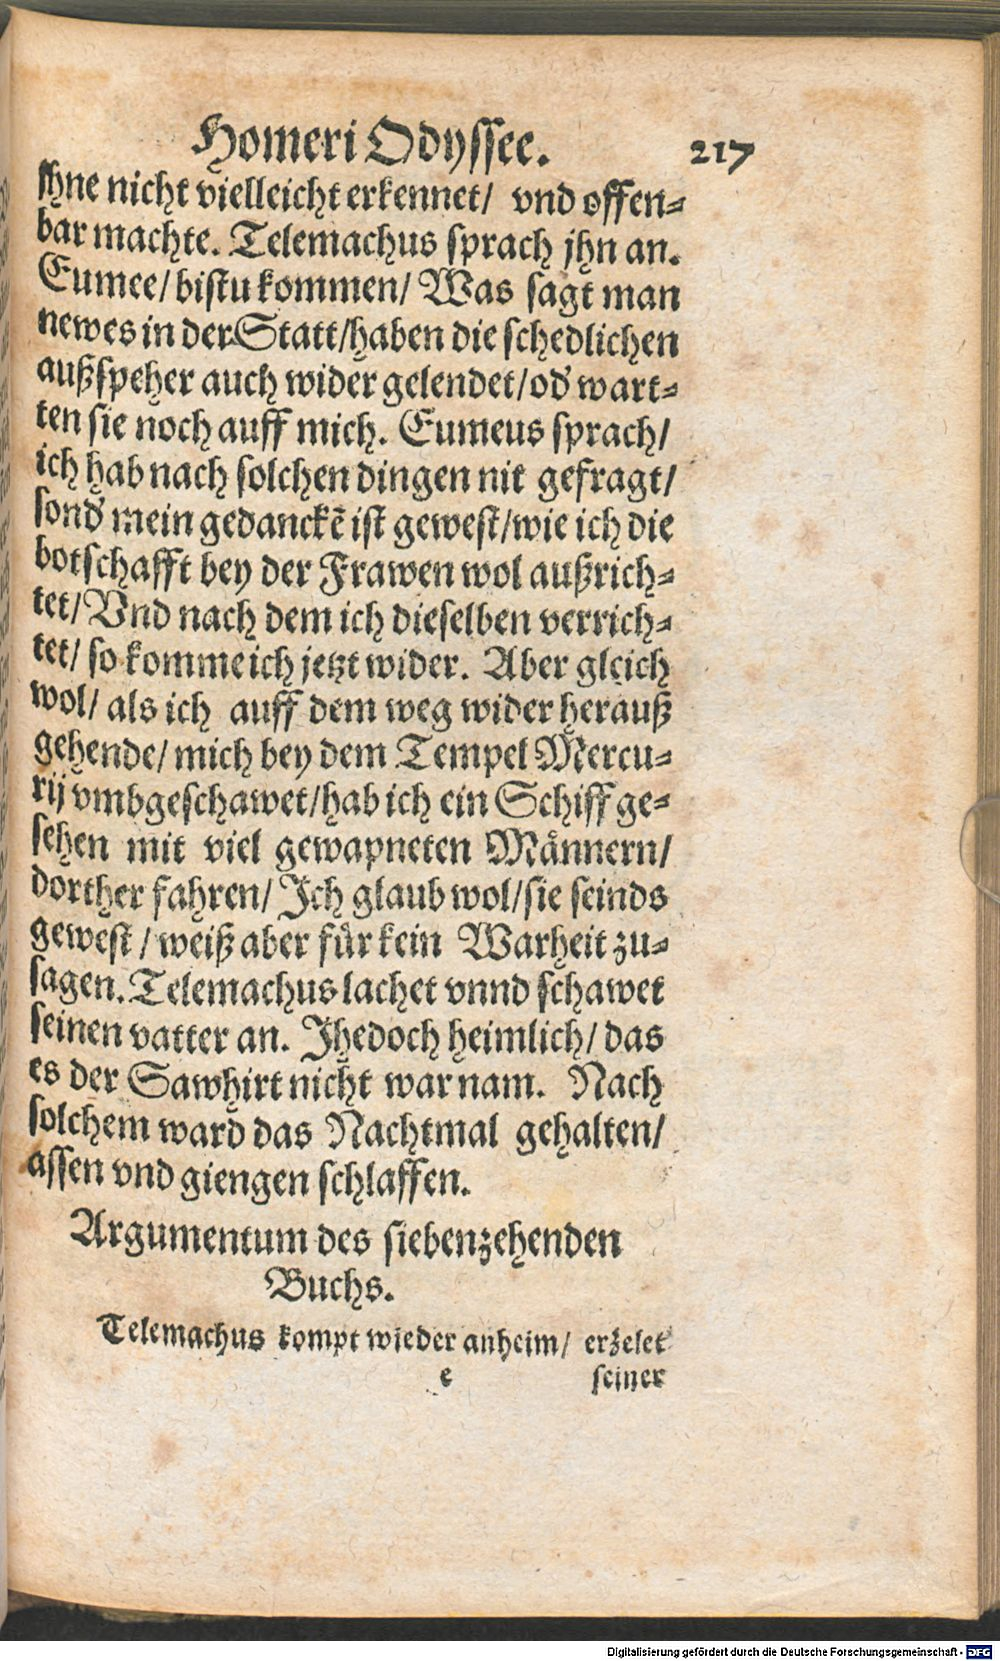 Homeri Odyssee. 217
jhne nicht vielleicht erkennet/ vnd offen⸗
bar machte. Telemachus sprach jhn an.
Eumee/ bistu kommen/ Was sagt man
newes in der Statt/ haben die schedlichen
außspeher auch wider gelendet/ od' wart⸗
ten sie noch auff mich. Eumeus sprach/
ich hab nach solchen dingen nit gefragt/
sond' mein gedanckē ist gewest/ wie ich die
botschafft bey der Frawen wol außrich⸗
tet/ Vnd nach dem ich dieselben verrich⸗
tet/ so komme ich jetzt wider. Aber gleich
wol/ als ich auff dem weg wider herauß
gehende/ mich bey dem Tempel Mercu⸗
rij vmbgeschawet/ hab ich ein Schiff ge⸗
sehen mit viel gewapneten Männern/
dorther fahren/ Ich glaub wol/ sie seinds
gewest/ weiß aber für kein Warheit zu⸗
sagen. Telemachus lachet vnnd schawet
seinen vatter an. Jhedoch heimlich/ das
es der Sawhirt nicht war nam. Nach
solchem ward das Nachtmal gehalten/
assen vnd giengen schlaffen.
Argumentum des siebenzehenden
Buchs.
Telemachus kompt wieder anheim/ erzelet
e seiner
Digitalisierung gefördert durch die Deutsche Forschungsgemeinschaft - DFG